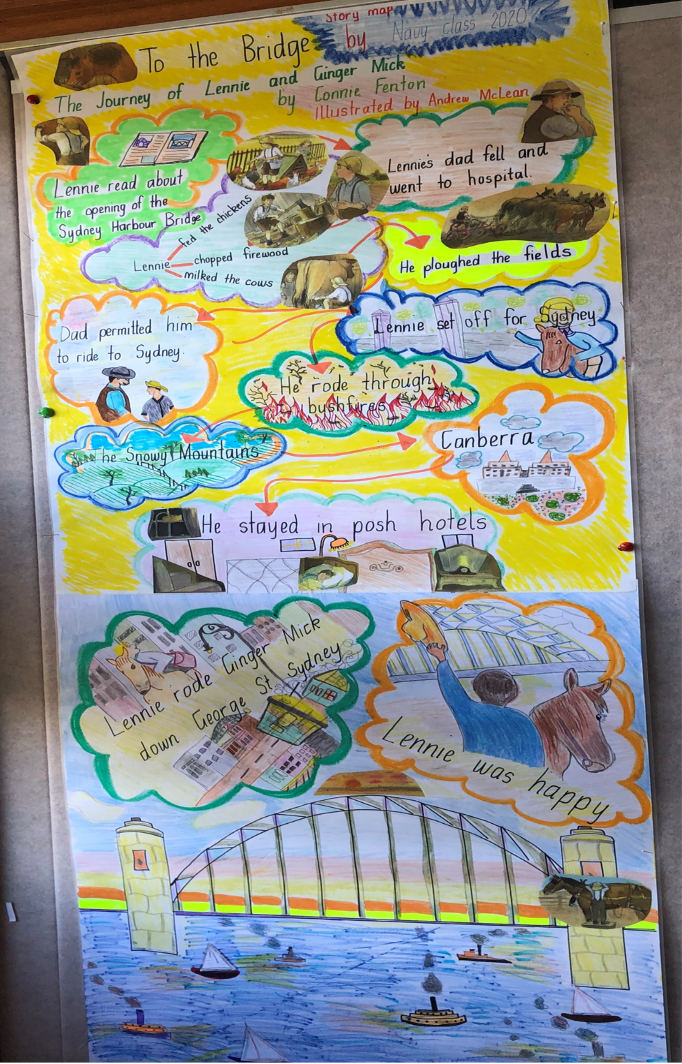 Story map
by Navy class 2020
To the Bridge
The Journey of Lennie and Ginger Mick
by Connie Fenton
Illustrated by Andrew McLean
Lennie read about
the opening of the
Sydney Harbour Bridge
Lennie's dad fell and
went to hospital.
Lennie
fed the chickens
chopped firewood
milked the cows
He ploughed the fields
Dad permitted him
to ride to Sydney.
Lennie set off for Sydney
He rode through
bushfires
The Snowy Mountains
Canberra
He stayed in posh hotels
Lennie rode Ginger Mick
down George St, Sydney
Lennie was happy